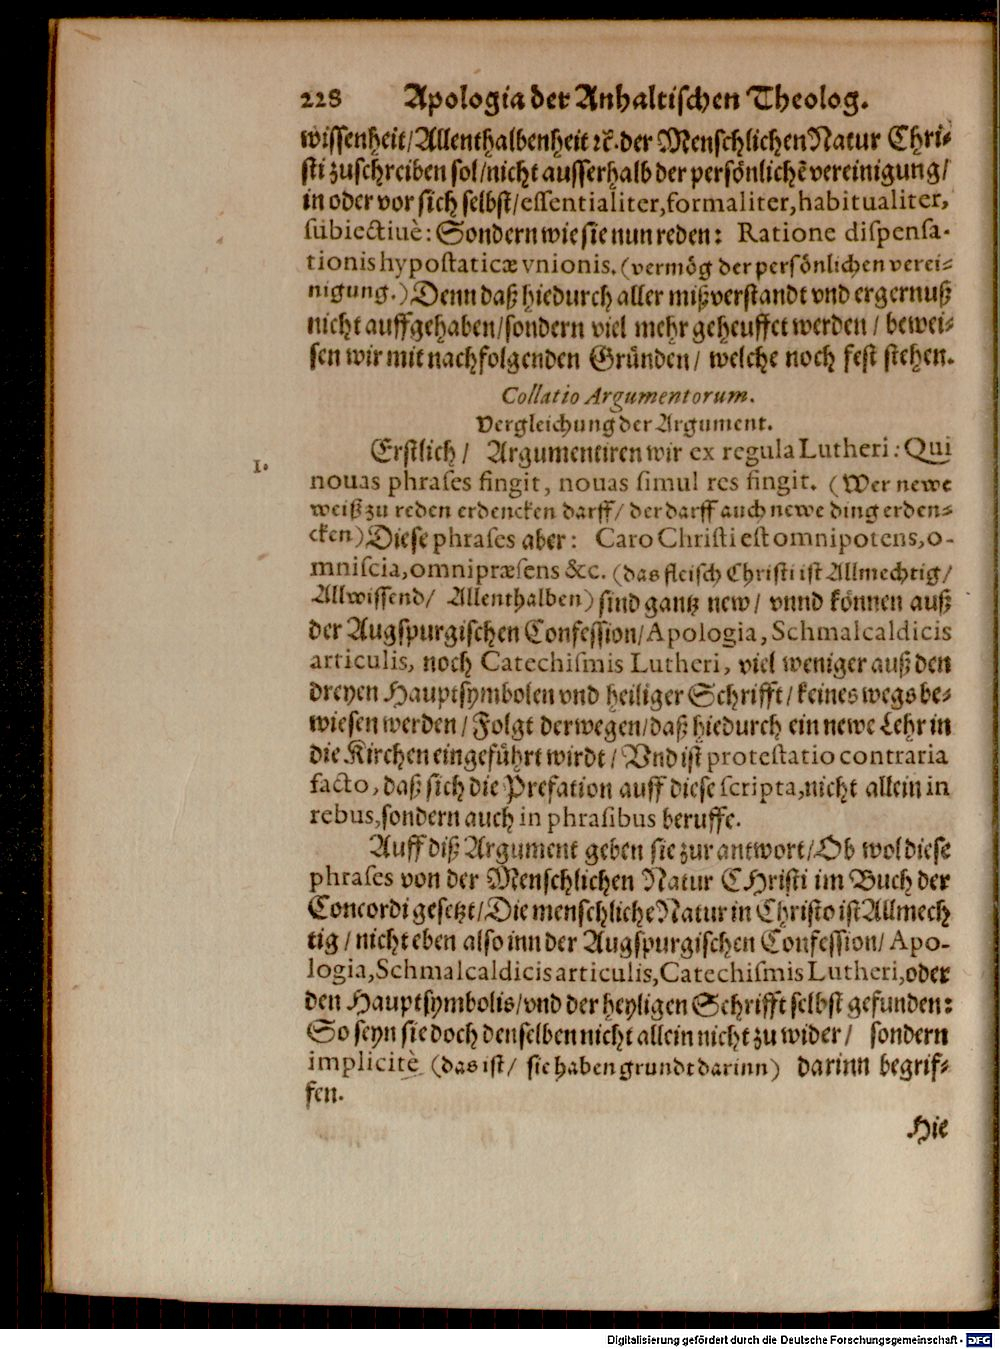 228 Apologia der Anhaltischen Theolog.
wissenheit/Allenthalbenheit ꝛc. der Menschlichen Natur Chri-
sti zuschreiben sol/nicht ausserhalb der persönlichē vereinigung/
in oder vor sich selbst/essentialiter, formaliter, habitualiter,
subiectiuè: Sondern wie sie nun reden: Ratione dispensa-
tionis hypostaticæ vnionis. (vermög der persönlichen verei-
nigung.) Denn daß hiedurch aller mißverstandt vnd ergernuß
nicht auffgehaben/sondern viel mehr geheuffet werden / bewei-
sen wir mit nachfolgenden Gründen/ welche noch fest stehen.
Collatio Argumentorum.
Vergleichung der Argument.
1. Erstlich/ Argumentiren wir ex regula Lutheri: Qui
nouas phrases fingit, nouas simul res fingit. (Wer newe
weiß zu reden erdencken darff/ der darff auch newe ding erden-
cken) Diese phrases aber: Caro Christi est omnipotens, o-
mniscia, omnipræsens &c. (das fleisch Christi ist Allmechtig/
Allwissend/ Allenthalben) sind gantz new/ vnnd können auß
der Augspurgischen Confession/Apologia, Schmalcaldicis
articulis, noch Catechismis Lutheri, viel weniger auß den
dreyen Hauptsymbolen vnd heiliger Schrifft/keines wegs be-
wiesen werden/Folgt derwegen/daß hiedurch ein newe Lehr in
die Kirchen eingeführt wirdt/ Vnd ist protestatio contraria
facto, daß sich die Prefation auff diese scripta, nicht allein in
rebus, sondern auch in phrasibus beruffe.
Auff diß Argument geben sie zur antwort/Ob wol diese
phrases von der Menschlichen Natur CHristi im Buch der
Concordi gesetzt/Die menschliche Natur in Christo ist Allmech
tig/nicht eben also inn der Augspurgischen Confession/Apo-
logia, Schmalcaldicis articulis, Catechismis Lutheri, oder
den Hauptsymbolis/vnd der heyligen Schrifft selbst gefunden:
So seyn sie doch denselben nicht allein nicht zu wider/ sondern
implicitè (das ist/ sie haben grundt darinn) darinn begrif-
fen.
Hie
Digitalisierung gefördert durch die Deutsche Forschungsgemeinschaft - DFG